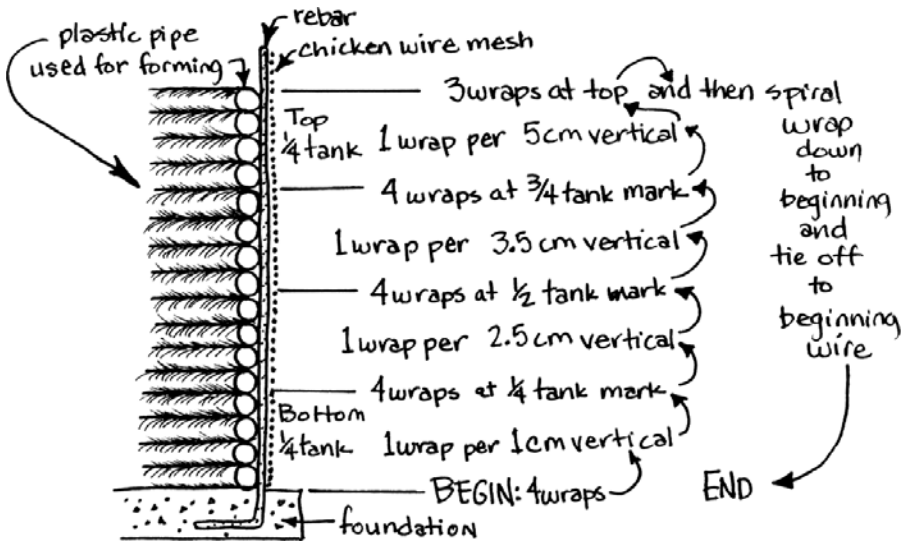 rebar
plastic pipe
used for forming
chicken wire mesh
3 wraps at top and then spiral
wrap
down
to
beginning
and
tie off
to
beginning
wire
Top
1/4 tank
1 wrap per 5cm vertical
4 wraps at 3/4 tank mark
1 wrap per 3.5cm vertical
4 wraps at 1/2 tank mark
1 wrap per 2.5cm vertical
4 wraps at 1/4 tank mark
Bottom
1/4 tank
1 wrap per 1cm vertical
BEGIN: 4 wraps
END
foundation